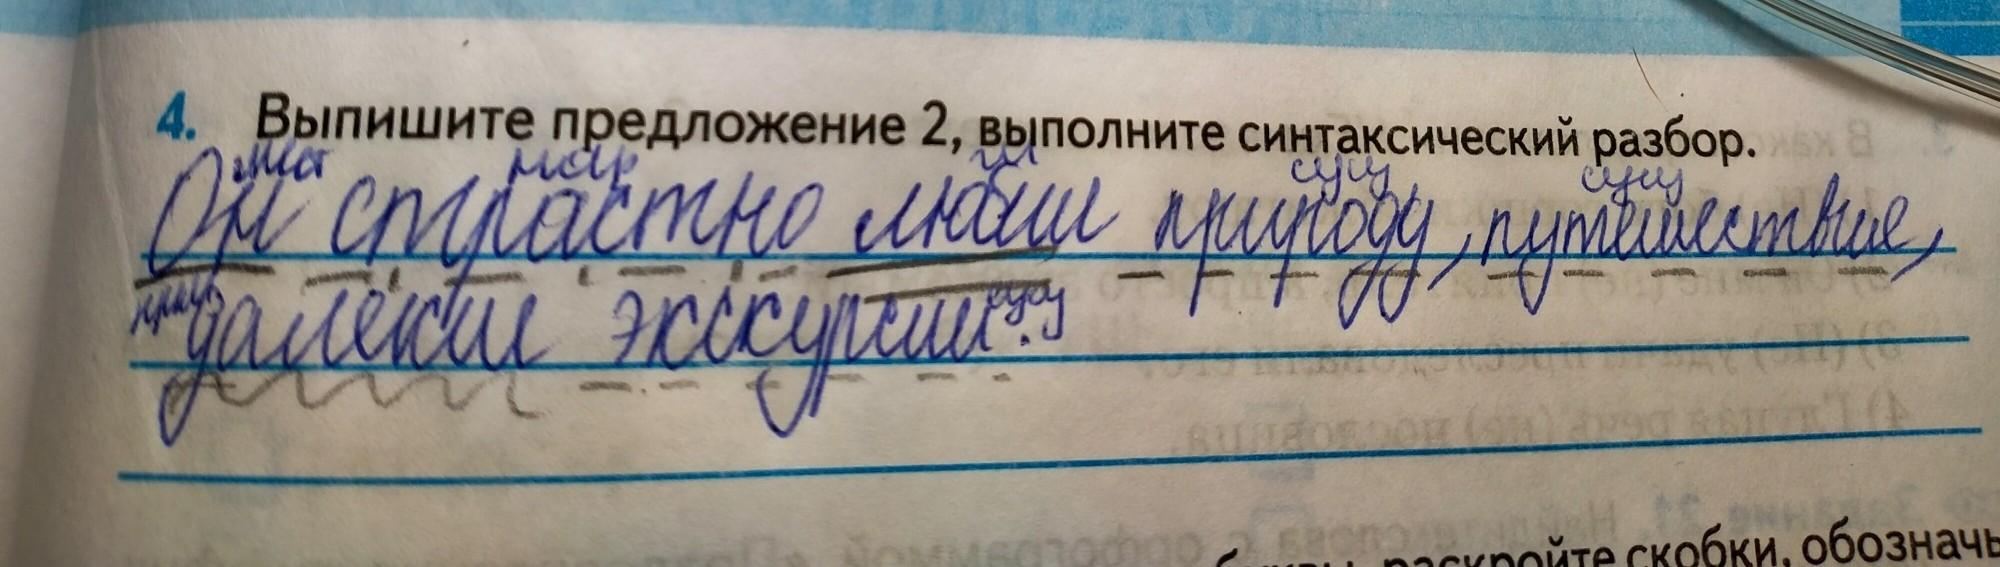 4. Выпишите предложение 2, выполните синтаксический разбор.
мест нар гл сущ сущ
Он страстно любил природу, путешествие,
прил сущ
далекии экскурсии.
раскройте скобки, обознач